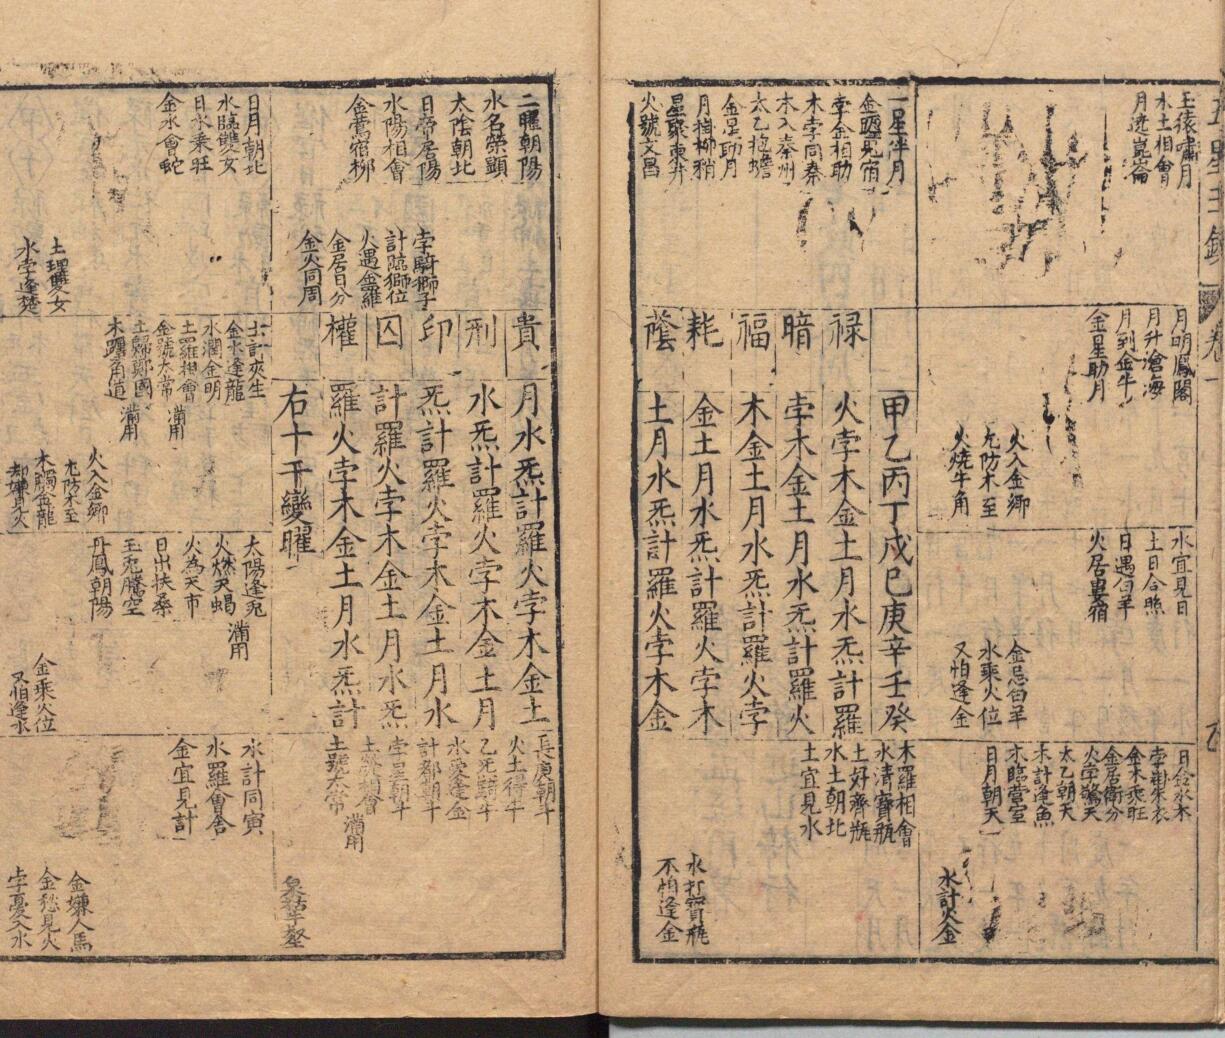 玉猿嘯月
水土相會
月進崑崙
月明鳳閣
月升滄海
月到金牛
金星助月
火入金鄉
尤防木至
火燒牛角
水宜見日
土日合照
日遇白羊
火居婁宿
金忌白羊
水乘火位
又怕逢金
日合水木
孛掛朱衣
金木乘旺
金居衛分
火孛驚天
太乙朝天
木計逢魚
木臨營室
日月朝天
水計火金
一星伴月
金逕見雨
孛金相助
木孛同秦
木入秦州
太乙抱蟾
金星助月
月掛柳稍
星聚東井
火號文昌
甲乙丙丁戊巳庚辛壬癸
祿
火孛木金土月水炁計羅
暗
孛木金土月水炁計羅火
福
木金土月水炁計羅火孛
耗
金土月水炁計羅火孛木
蔭
土月水炁計羅火孛木金
木羅相會
水清寶瓶
土好齊瓶
水土朝北
土宜見水
水打寶瓶
不怕逢金
二曜朝陽
水名榮顯
太陰朝北
日帝居陽
水陽相會
金鶯宿柳
孛騎獅子
計臨獅位
火遇金羅
金居日分
金火同周
貴
月水炁計羅火孛木金土
刑
水炁計羅火孛木金土月
印
炁計羅火孛木金土月水
囚
計羅火孛木金土月水炁
權
羅火孛木金土月水炁計
右十干變曜
長庚朝斗
火土得斗
乙炁騎斗
水愛逢金
計都朝斗
孛星朝斗
土號太常
日月朝北
水臨雙女
日水乘旺
金水會蛇
土埋雙女
水孛逢楚
土計夾生
金水逢龍
水潤金明
土羅相會
金號太常
土歸鄭國
木躍角道
火入金鄉
尤防木至
木觸金龍
却嫌見火
太陽逢兎
火燃天蝎
火為天市
日出扶桑
玉兎騰空
丹鳳朝陽
金乘火位
又怕逢水
水計同寅
水羅會舍
金宜見計
金嫌人馬
金愁見火
孛憂入水